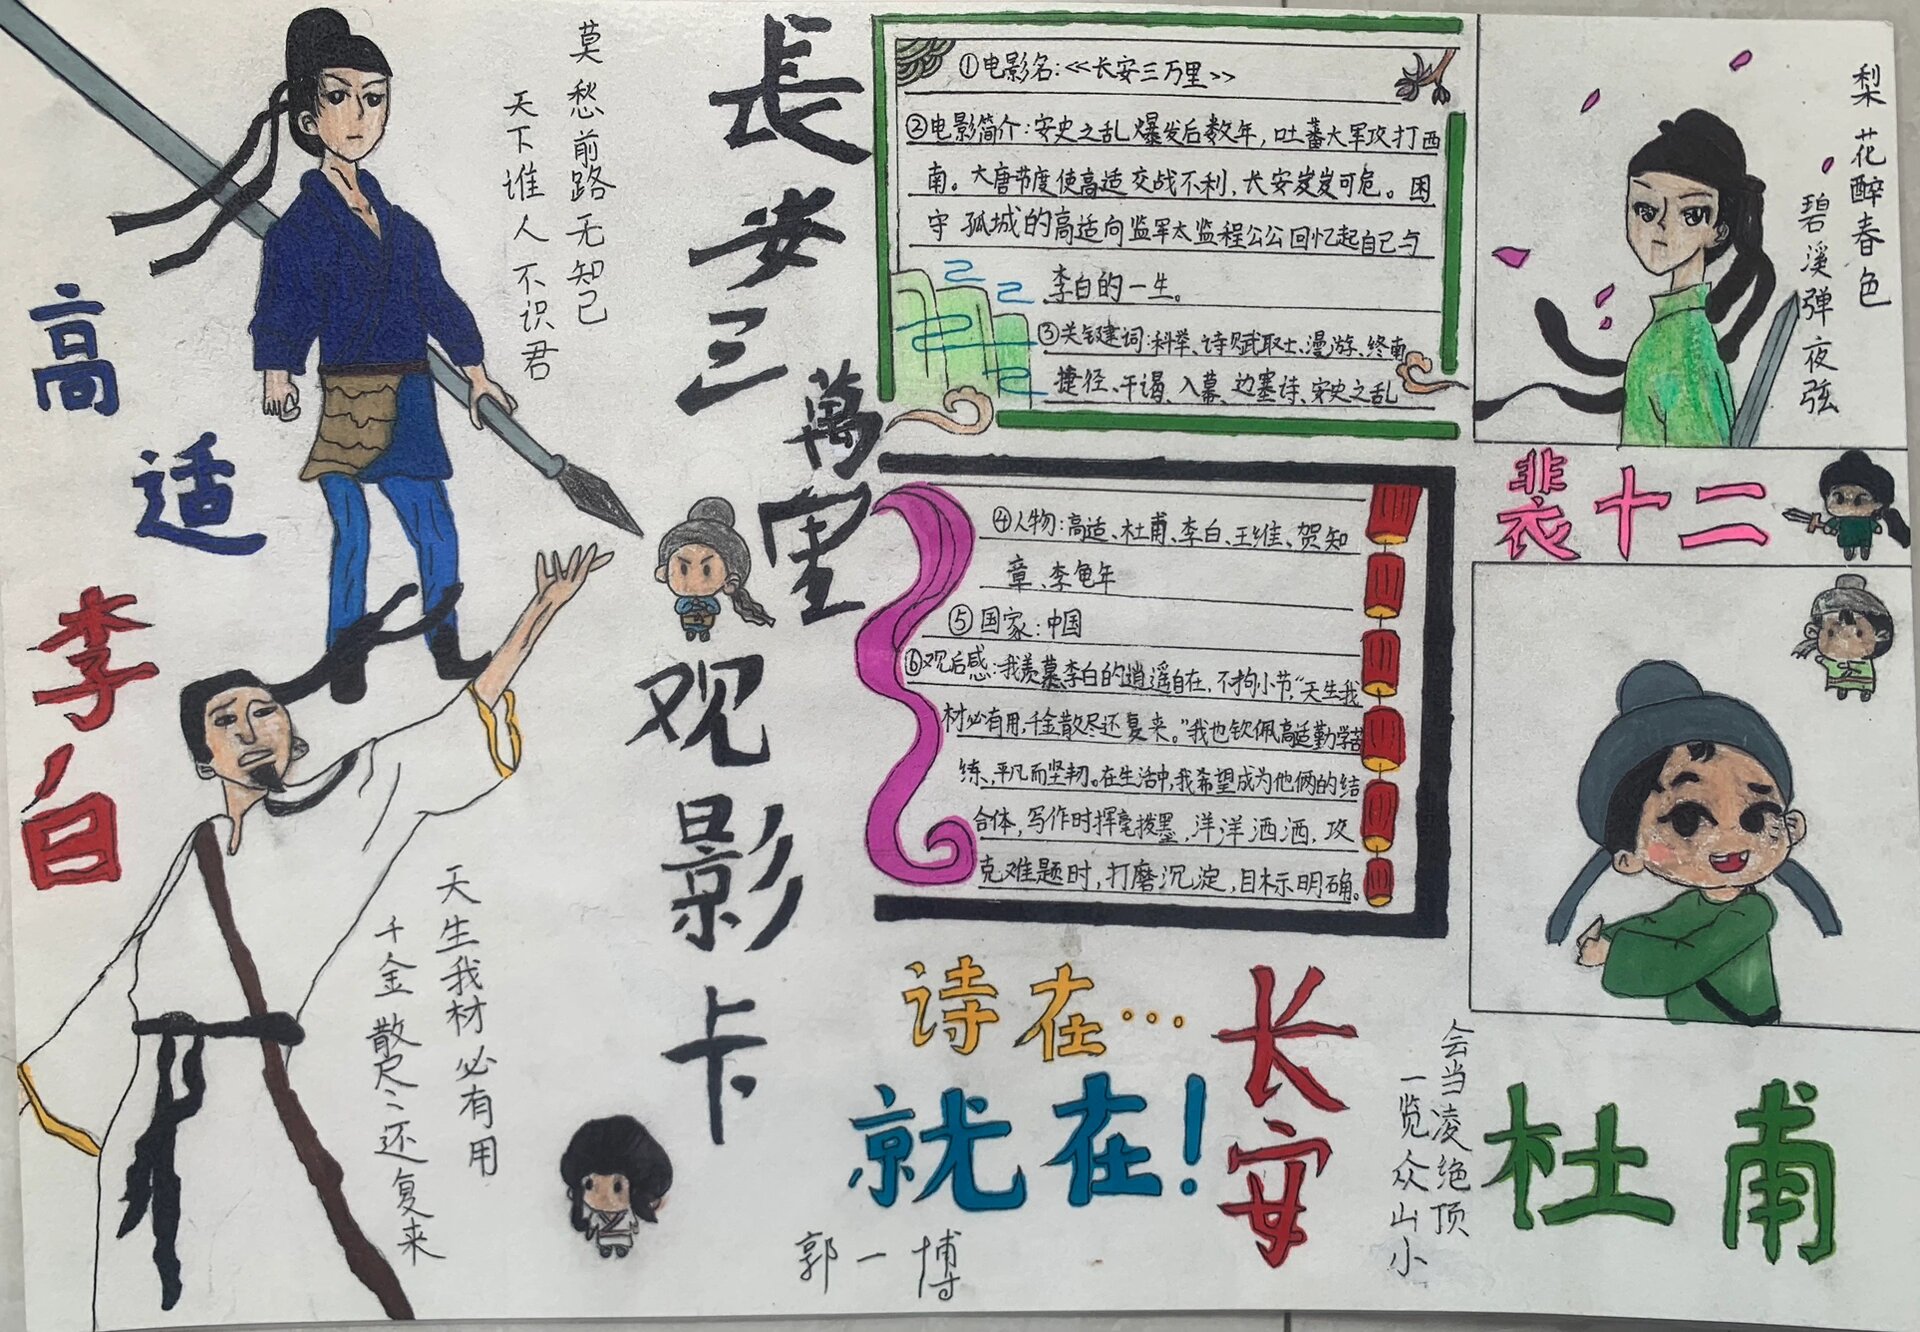 長安三萬里
观影卡
高适
莫愁前路无知己
天下谁人不识君
李白
天生我材必有用
千金散尽还复来
①电影名:<<长安三万里>>
②电影简介:安史之乱爆发后数年,吐蕃大军攻打西
南。大唐节度使高适交战不利,长安岌岌可危。困
守孤城的高适向监军太监程公公回忆起自己与
李白的一生。
③关键建词:科举、诗赋取士、漫游、终南
捷径、干谒、入幕、边塞诗、安史之乱
④人物:高适、杜甫、李白、王维、贺知
章、李龟年
⑤国家:中国
⑥观后感:我羡慕李白的逍遥自在,不拘小节,“天生我
材必有用,千金散尽还复来。”我也钦佩高适勤学苦
练、平凡而坚韧。在生活中,我希望成为他俩的结
合体,写作时挥毫拨墨,洋洋洒洒,攻
克难题时,打磨沉淀,目标明确。
梨花醉春色
碧溪弹夜弦
裴十二
诗在…
长安
就在!
会当凌绝顶
一览众山小
杜甫
郭一博